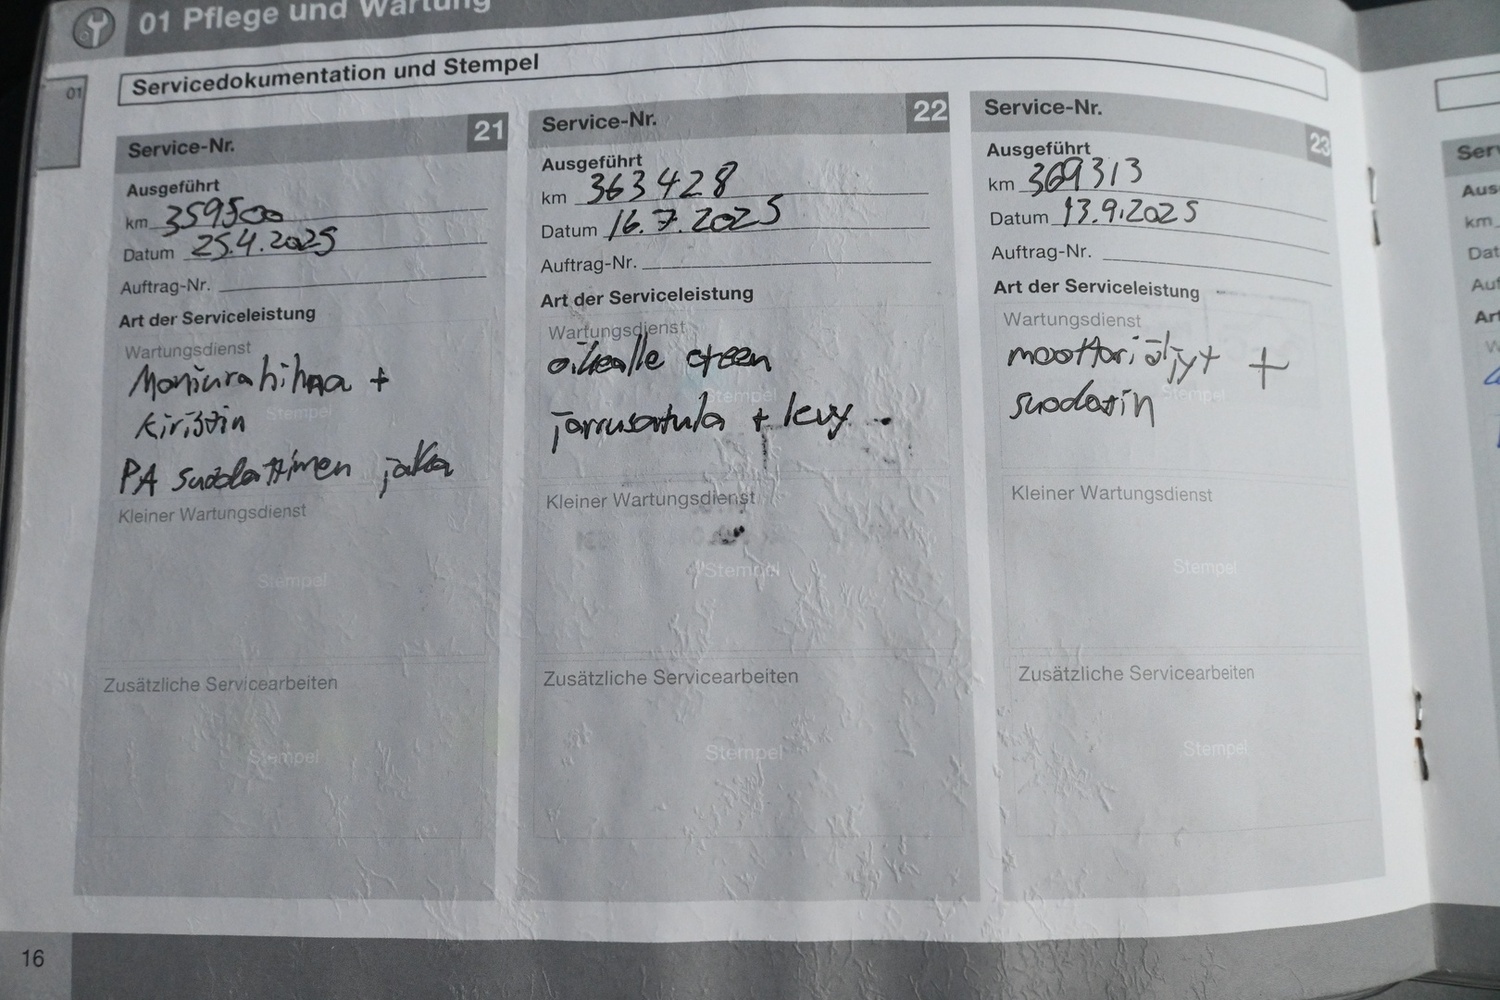 01 Pflege und Wartung
01
Servicedokumentation und Stempel
Service-Nr. 21
Ausgeführt
km 359500
Datum 25.4.2025
Auftrag-Nr.
Art der Serviceleistung
Wartungsdienst
Moniurahihna +
kiristin
Stempel
PA suodattimen jakka
Kleiner Wartungsdienst
Stempel
Zusätzliche Servicearbeiten
Stempel
Service-Nr. 22
Ausgeführt
km 363428
Datum 16.7.2025
Auftrag-Nr.
Art der Serviceleistung
Wartungsdienst
oikealle eteen
Stempel
jarrusatula + levy
Kleiner Wartungsdienst
Stempel
Zusätzliche Servicearbeiten
Stempel
Service-Nr. 23
Ausgeführt
km 369313
Datum 13.9.2025
Auftrag-Nr.
Art der Serviceleistung
Wartungsdienst
moottoriöljyt +
Stempel
suodatin
Kleiner Wartungsdienst
Stempel
Zusätzliche Servicearbeiten
Stempel
16